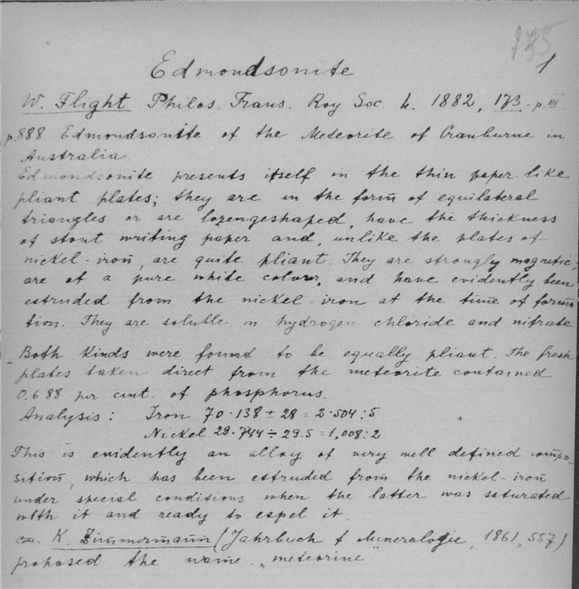 135
1
Edmondsonite
W. Flight Philos. Trans. Roy Soc. L. 1882, 173. p. III
p.888 Edmondsonite of the Meteorite of Cranburne in
Australia
Edmondsonite presents itself in the thin paper-like
pliant plates; they are in the form of equilateral
triangles or are lozengeshaped, have the thickness
of stout writing paper and, unlike the plates of
nickel-iron, are quite pliant. They are strongly magnetic,
are of a pure white colour, and have evidently been
extruded from the nickel-iron at the time of forma
tion. They are soluble in hydrogen chloride and nitrate
Both kinds were found to be equally pliant. The fresh
plates taken direct from the meteorite contained
0.688 per cent. of phosphorus.
Analysis: Iron 70.138 ÷ 28 = 2.504:5
Nickel 29.744 ÷ 29.5 = 1,008:2
This is evidently an alloy of very well defined compo-
sition, which has been extruded from the nickel-iron
under special conditions when the latter was saturated
with it and ready to expel it
K. Zimmermann (Jahrbuch f Mineralogie, 1861, 557)
proposed the name „meteorine"